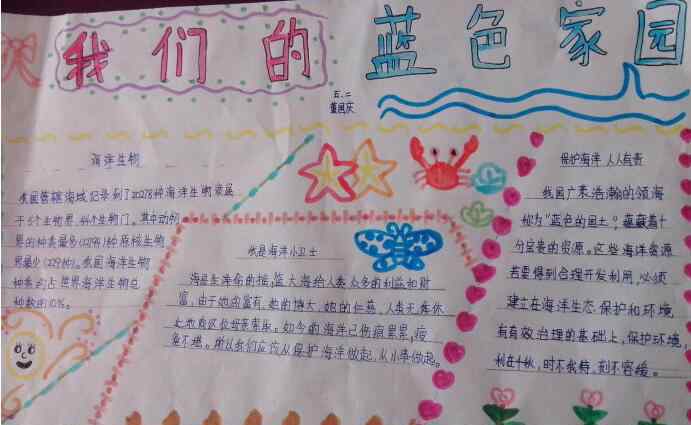 我们的蓝色家园
五、二
董国庆
海洋生物
我国管辖海域记录到了20278种海洋生物隶属
于5个生物界、44个生物门。其中动物
界的种类最多(12794种)原核生物
界最少(229种)。我国海洋生物
种类约占世界海洋生物总
种数的10%。
我是海洋小卫士
海是生命的摇篮大海给人类众多的利益和财
富,由于她的富有,她的博大,她的仁慈,人类无休
止地向这位母亲索取。如今的海洋已伤痕累累,疲
惫不堪。所以我们应该从保护海洋做起,从小事做起。
保护海洋 人人有责
我国广袤浩瀚的领海
称为“蓝色的国土”,蕴藏着十
分宝贵的资源。这些海洋资源
若要得到合理开发利用,必须
建立在海洋生态保护和环境
有有效治理的基础上,保护环境,
利在千秋,时不我待,刻不容缓。